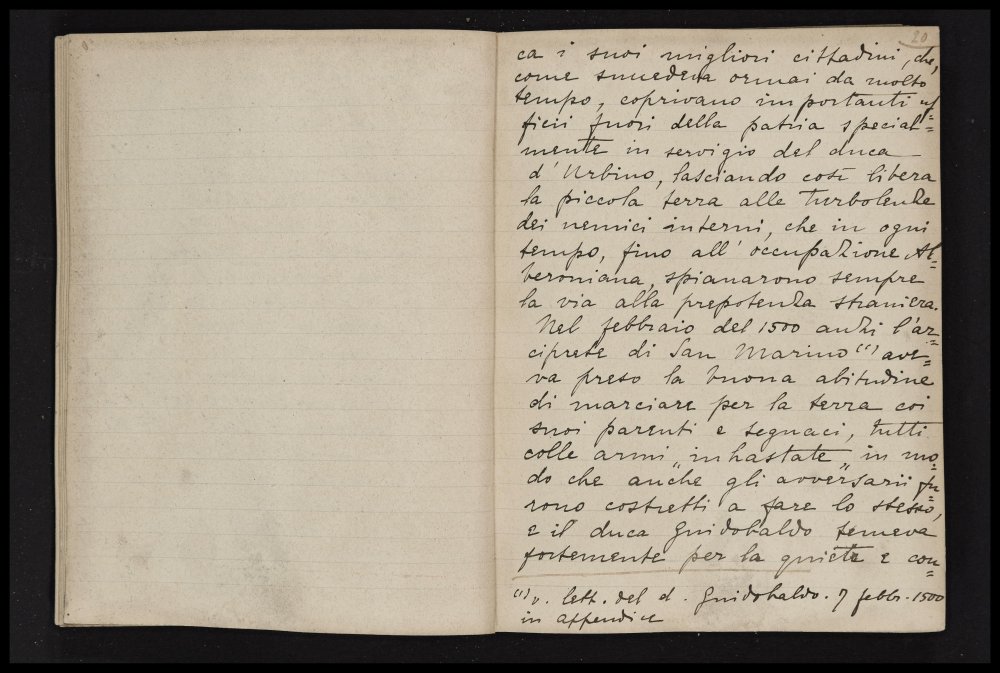 20
ca i suoi migliori cittadini, che,
come succedeva ormai da molto
tempo, coprivano importanti uf=
ficii fuori della patria special=
mente in servigio del duca
d'Urbino, lasciando così libera
la piccola terra alle turbolenze
dei nemici interni, che in ogni
tempo, fino all'occupazione Al=
beroniana, spianarono sempre
la via alla prepotenza straniera.
Nel febbraio del 1500 anzi l'ar=
ciprete di San Marino (1) ave=
va preso la buona abitudine
di marciare per la terra coi
suoi parenti e seguaci, tutti
colle armi „inhastate„ in mo=
do che anche gli avversarii fu=
rono costretti a fare lo stesso,
e il duca Guidobaldo temeva
fortemente per la quiete e con=
(1) v. lett. del d. Guidobaldo. 7 febbr. 1500
in appendice